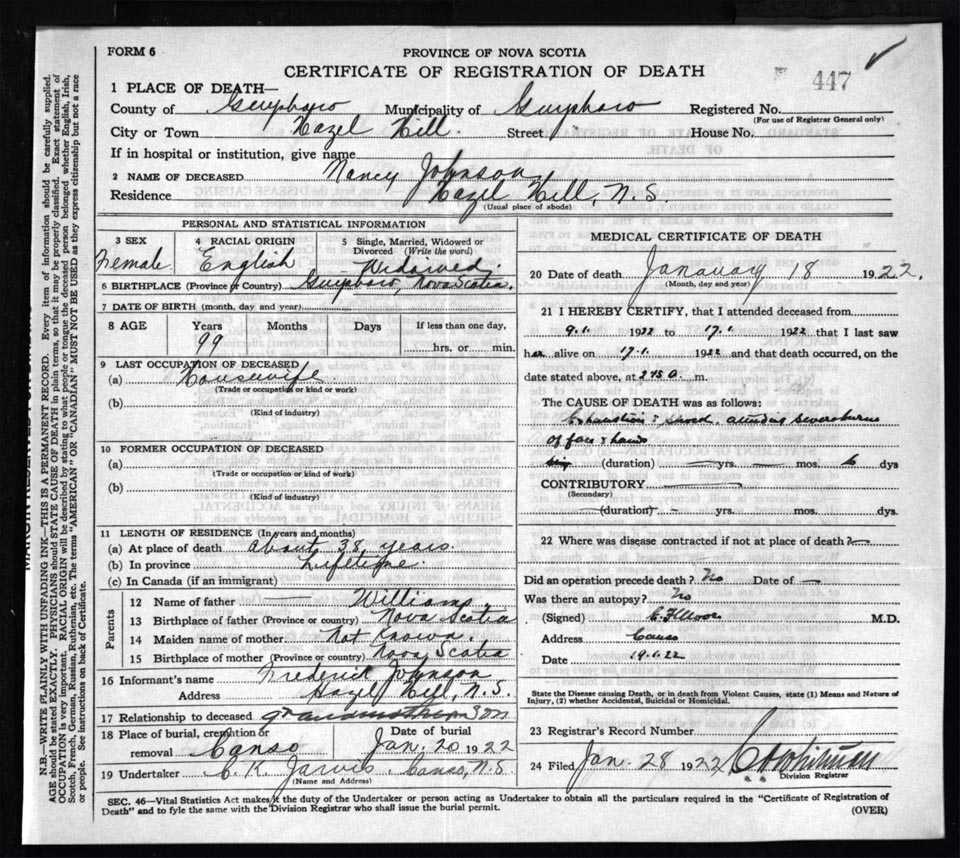 FORM 6
PROVINCE OF NOVA SCOTIA
CERTIFICATE OF REGISTRATION OF DEATH
447
1 PLACE OF DEATH—
County of Guysboro Municipality of Guysboro Registered No.
(For use of Registrar General only)
City or Town Hazel Hill. Street House No.
If in hospital or institution, give name
2 NAME OF DECEASED Nancy Johnson
Residence Hazel Hill, N.S.
(Usual place of abode)
PERSONAL AND STATISTICAL INFORMATION
3 SEX Female
4 RACIAL ORIGIN English
5 Single, Married, Widowed or Divorced (Write the word) Widowed.
6 BIRTHPLACE (Province or Country) Guysboro, Nova Scotia.
7 DATE OF BIRTH (month, day and year)
8 AGE Years Months Days If less than one day,
99 hrs. or min.
9 LAST OCCUPATION OF DECEASED
(a) Housewife
(Trade or occupation or kind or work)
(b)
(Kind of industry)
10 FORMER OCCUPATION OF DECEASED
(a)
(Trade or occupation or kind of work)
(b)
(Kind of industry)
11 LENGTH OF RESIDENCE (In years and months)
(a) At place of death about 38 years.
(b) In province Lifetime.
(c) In Canada (if an immigrant)
Parents
12 Name of father Williams.
13 Birthplace of father (Province or country) Nova Scotia
14 Maiden name of mother. Not Known.
15 Birthplace of mother (Province or country) Nova Scotia
16 Informant's name Frederick Johnson
Address Hazel Hill, N.S.
17 Relationship to deceased grandmother Son
18 Place of burial, cremation or removal Canso
Date of burial Jan. 20 1922
19 Undertaker C. K. Jarvis. Canso, N.S.
(Name and Address)
MEDICAL CERTIFICATE OF DEATH
20 Date of death January 18 1922.
(Month, day and year)
21 I HEREBY CERTIFY, that I attended deceased from
9.1. 1922 to 17.1. 1922 that I last saw
her alive on 17.1. 1922 and that death occurred, on the
date stated above, at 2 45 a. m.
The CAUSE OF DEATH was as follows:
Exhaustion & shock, attending severe burns
of face & hands
(duration) yrs. mos. 6 dys
CONTRIBUTORY
(Secondary)
(duration) yrs. mos. dys.
22 Where was disease contracted if not at place of death?
Did an operation precede death? No Date of
Was there an autopsy? No
(Signed) M.D.
Address Canso
Date 19.1.22
State the Disease causing Death, or in death from Violent Causes, state (1) Means and Nature of
Injury, (2) whether Accidental, Suicidal or Homicidal.
23 Registrar's Record Number
24 Filed Jan. 28 1922
Division Registrar
SEC. 46—Vital Statistics Act makes it the duty of the Undertaker or person acting as Undertaker to obtain all the particulars required in the "Certificate of Registration of
Death" and to fyle the same with the Division Registrar who shall issue the burial permit.
(OVER)
N.B.—WRITE PLAINLY WITH UNFADING INK—THIS IS A PERMANENT RECORD. Every item of information should be carefully supplied.
AGE should be stated EXACTLY. PHYSICIANS should STATE CAUSE OF DEATH in plain terms, so that it may be properly classified. Exact statement of
OCCUPATION is very important. RACIAL ORIGIN will be described by stating to what people or tongue the deceased person belonged whether English, Irish,
Scotch, French, German, Russian, Ruthenian, etc. The terms "AMERICAN" OR "CANADIAN" MUST NOT BE USED as they express citizenship but not a race
or people. See instructions on back of Certificate.